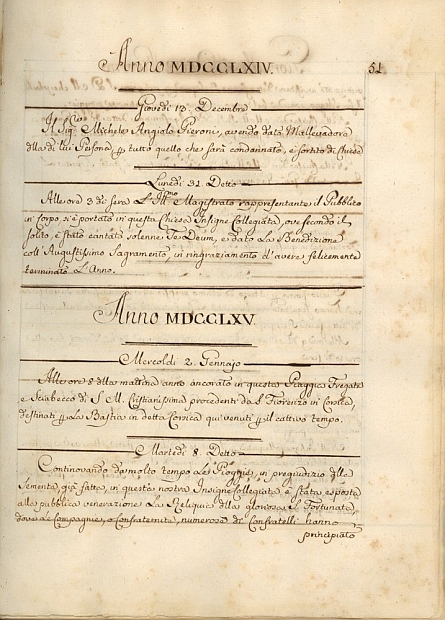 Anno MDCCLXIV.
51
Giovedì 13. Decembre
Il Sig.re Michele Angiolo Pieroni, avendo data Mallevadora
della di lui Persona p tutto quello che sarà condannato, è sortito di Chiesa
Lunedì 31. Detto
Alle ore 3 di sera L'Ill.mo Magistrato rappresentante il Pubblico
in Corpo si è portato in questa Chiesa Insigne Collegiata, ove secondo il
solito, è stato cantato solenne Te Deum, e dato La Benedizione
coll'Augustissimo Sagramento, in ringraziamento d'avere felicemente
terminato L'Anno.
Anno MDCCLXV.
Mercoldì 2. Gennajo
Alle ore 8 della mattina anno ancorato in questa Piaggia Fregate
e Sciabecco di S. M. Cristianissima procedenti da S. Fiorenzo in Corsica,
destinati p La Bastia in detta Corsica qui venuti p il cattivo tempo.
Martedì 8. Detto
Continovando da molto tempo Le Pioggie, in pregiudizio della
Sementa, già fatta, in questa nostra Insigne Collegiata, è stata esposta
alla pubblica venerazione La Reliquia della gloriosa S. Fortunata,
dove le Compagnie, o Confraternite, numerose di Confratelli hanno
principiato